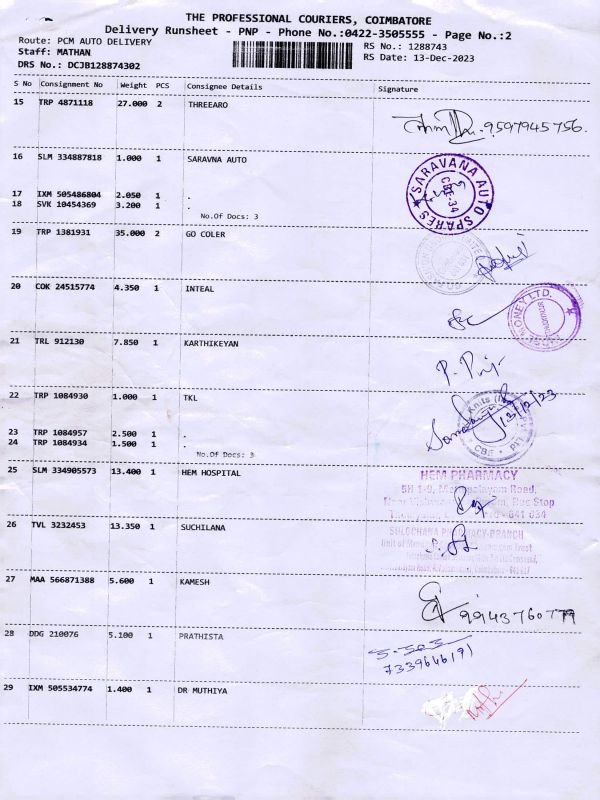 THE PROFESSIONAL COURIERS, COIMBATORE
Delivery Runsheet - PNP - Phone No.:0422-3505555 - Page No.:2
Route: PCM AUTO DELIVERY
RS No.: 1288743
Staff: MATHAN
RS Date: 13-Dec-2023
DRS No.: DCJB128874302
S No Consignment No Weight PCS Consignee Details Signature
15 TRP 4871118 27.000 2 THREEARO
9597945756.
16 SLM 334887818 1.000 1 SARAVNA AUTO
SARAVANA AUTO SPARES
CBE-34
17 IXM 505486804 2.050 1 .
18 SVK 10454369 3.200 1 .
No.Of Docs: 3
19 TRP 1381931 35.000 2 GO COLER
20 COK 24515774 4.350 1 INTEAL
MONEY LTD.
21 TRL 912130 7.850 1 KARTHIKEYAN
22 TRP 1084930 1.000 1 TKL
13/12/23
Knits
CBE
23 TRP 1084957 2.500 1 .
24 TRP 1084934 1.500 1 .
No.Of Docs: 3
25 SLM 334905573 13.400 1 HEM HOSPITAL
HEM PHARMACY
Road,
Bus Stop
26 TVL 3232453 13.350 1 SUCHILANA
SULOCHANA PHARMACY-BRANCH
Unit of
27 MAA 566871388 5.600 1 KAMESH
9943760779
28 DDG 210076 5.100 1 PRATHISTA
7339646191
29 IXM 505534774 1.400 1 DR MUTHIYA